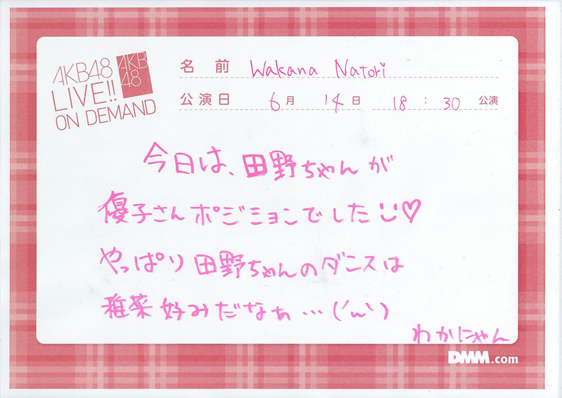 AKB48
LIVE!!
ON DEMAND
AKB
48
名前 Wakana Natori
公演日 6月 14日 18:30 公演
今日は、田野ちゃんが
優子さんポジションでした♡
やっぱり田野ちゃんのダンスは
稚菜好みだなぁ…('ω')
わかにゃん
DMM.com